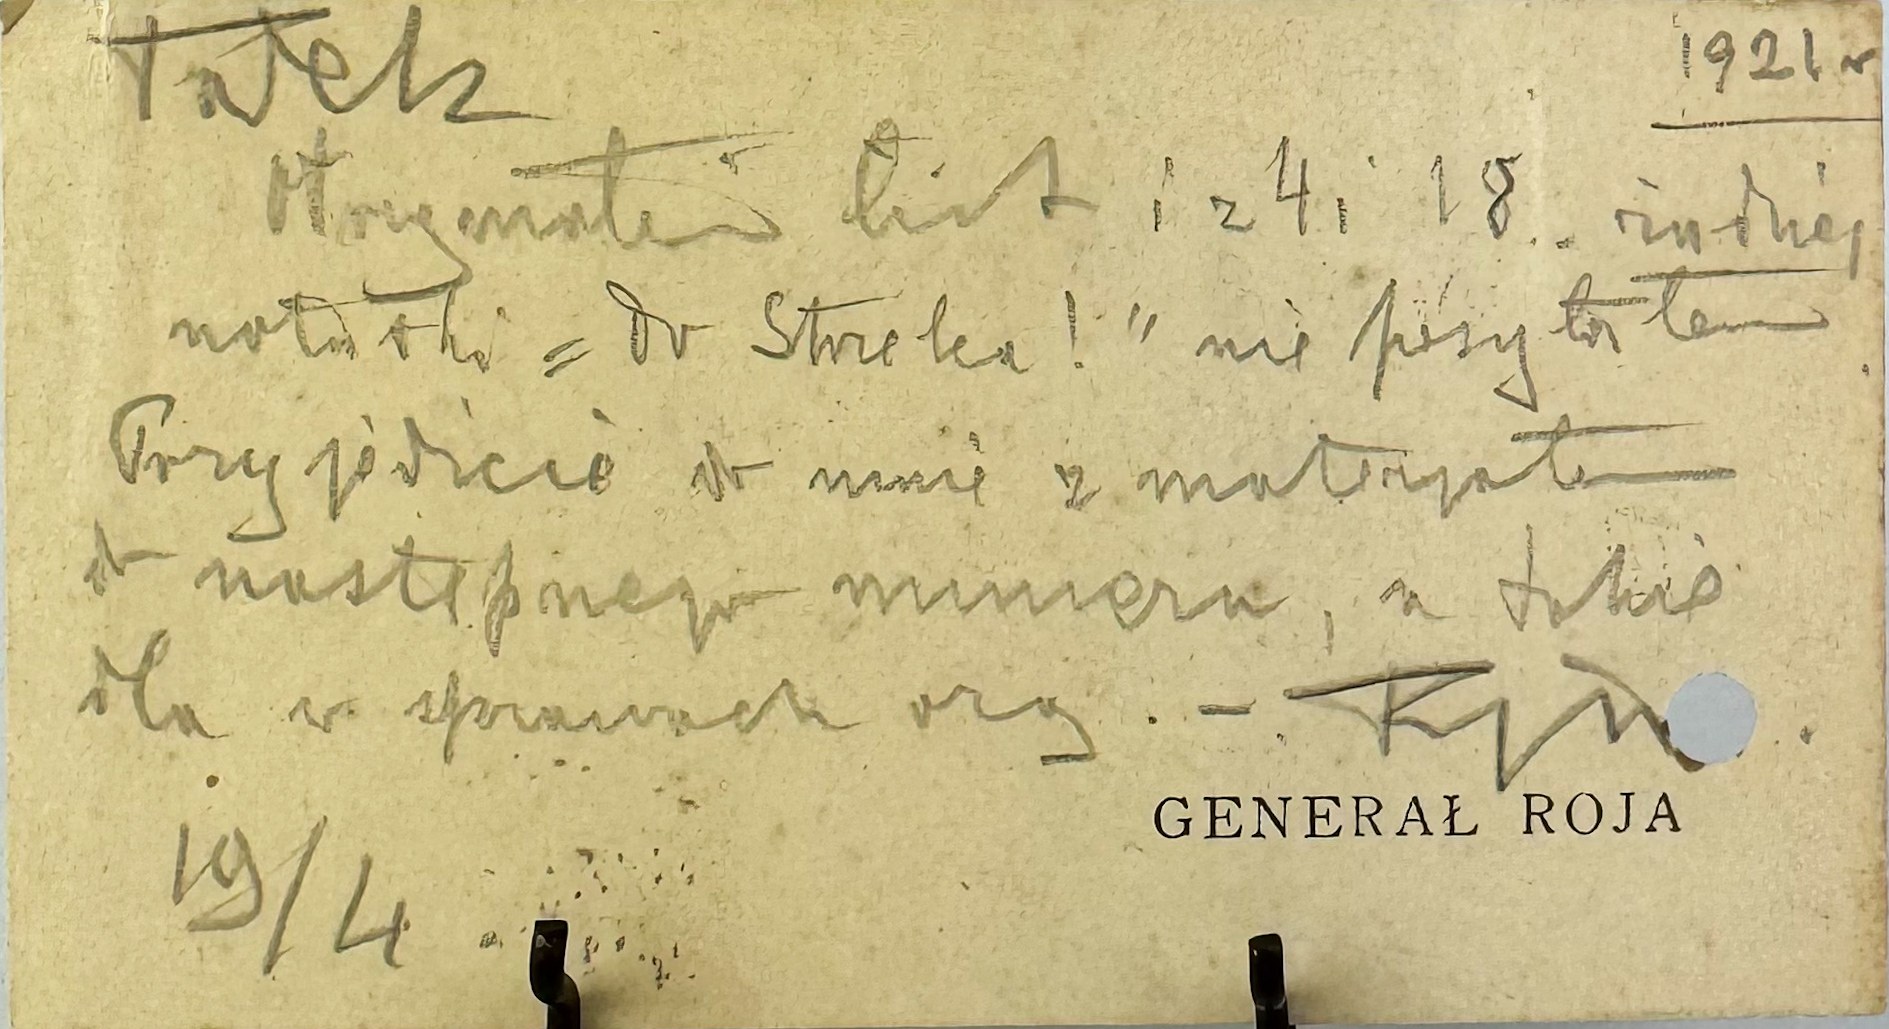 1921 r
Otrzymałem list i z 4 i 18. żadnej
notatki = do Strzelca! " nie posyłałem
Przyjedźcie do mnie z materyałem
do następnego numeru, a także
dla w sprawach org. -
GENERAŁ ROJA
19/4